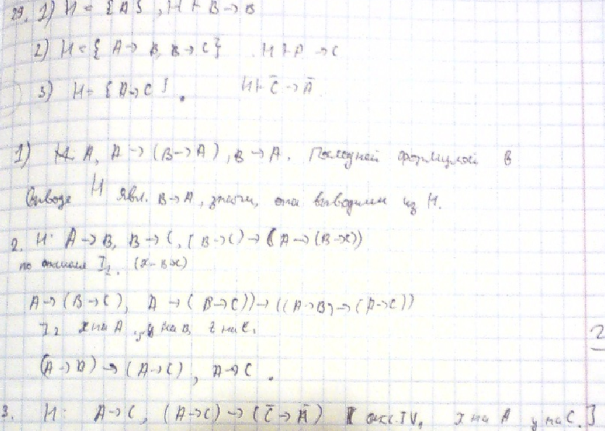 29. 1) H = {A}, H ⊢ B → B
2) H = { A → B, B → C } H ⊢ A → C
3) H = {A → C}. H ⊢ C̄ → Ā
1) H: A, A → (B → A), B → A. Последней формулой в
выводе H явл. B → A, значит, она выводима из H.
2. H: A → B, B → C, (B → C) → (A → (B → C))
по аксиоме I₂.
A → (B → C), A → (B → C)) → ((A → B) → (A → C))
I₂ x на A, y на B, z на C.
(A → B) → (A → C), A → C.
3. H: A → C, (A → C) → (C̄ → Ā) [ акс. IV, x на A y на C. ]